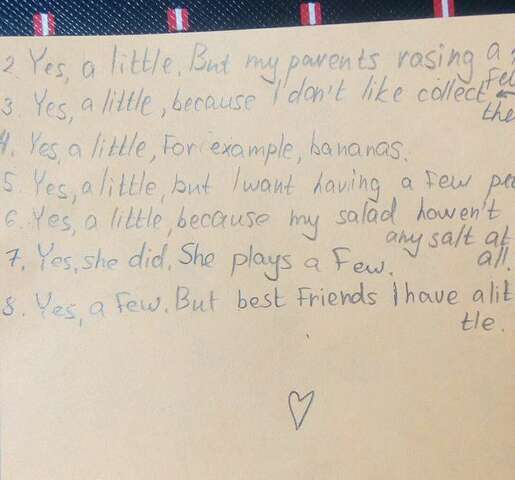 2 Yes, a little. But my parents rasing a
3. Yes, a little, because I don't like collect
the
4. Yes, a little, For example, bananas.
5. Yes, a little, but I want having a few
6. Yes, a little, because my salad haven't
any salt at
all.
7. Yes, she did. She plays a few.
8. Yes, a few. But best friends I have a lit
tle.